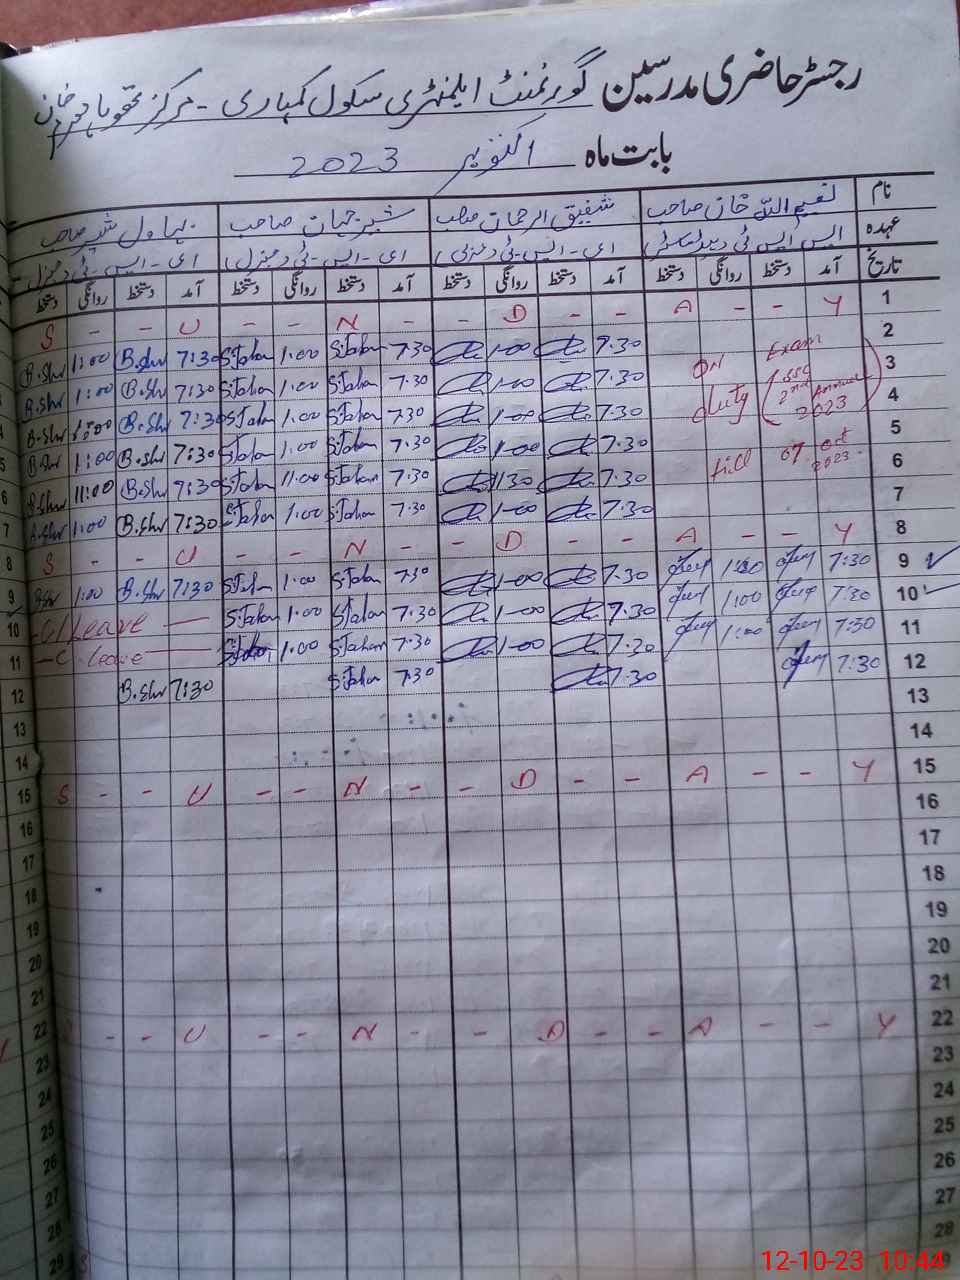 رجسٹر حاضری مدرسین گورنمنٹ ایلمنٹری سکول کمہاری - مرکز
بابت ماہ اکتوبر 2023
نام نعیم اللہ خان صاحب شفیق الرحمان صاحب شیر جہان صاحب بہاول شیر صاحب
عہدہ ایس ایس ٹی ای-ایس-ٹی ای-ایس-ٹی ای-ایس-ٹی
تاریخ آمد دستخط روانگی دستخط آمد دستخط روانگی دستخط آمد دستخط روانگی دستخط آمد دستخط روانگی دستخط
S - - U - - N - - D - - A - - Y 1
B.Shr 1:00 B.Shr 7:30 S.Jahan 1.00 S.Jahan 7.30 1-00 7.30 ON Exam 2
B.Shr 1:00 B.Shr 7:30 S.Jahan 1.00 S.Jahan 7.30 1-00 7.30 duty (SSC 2nd Annual 2023) 3
B.Shr 1:00 B.Shr 7:30 S.Jahan 1.00 S.Jahan 7.30 1-00 7.30 4
B.Shr 1:00 B.Shr 7:30 S.Jahan 1.00 S.Jahan 7.30 1-00 7.30 till 07 oct 2023. 5
B.Shr 11:00 B.Shr 7:30 S.Jahan 11.00 S.Jahan 7.30 11:30 7.30 6
B.Shr 1:00 B.Shr 7:30 S.Jahan 1.00 S.Jahan 7.30 1-00 7.30 7
S - - U - - N - - D - - A - - Y 8
B.Shr 1:00 B.Shr 7:30 S.Jahan 1.00 S.Jahan 7.30 1-00 7.30 1:00 7:30 9
C/Leave — S.Jahan 1.00 S.Jahan 7.30 1-00 7.30 1:00 7:30 10
— C. leave — S.Jahan 1.00 S.Jahan 7.30 1-00 7.30 1:00 7:30 11
B.Shr 7:30 S.Jahan 7.30 7.30 7:30 12
13
14
S - - U - - N - - D - - A - - Y 15
16
17
18
19
20
21
- - U - - N - - D - - A - - Y 22
23
24
25
26
27
28
29
12-10-23 10:44